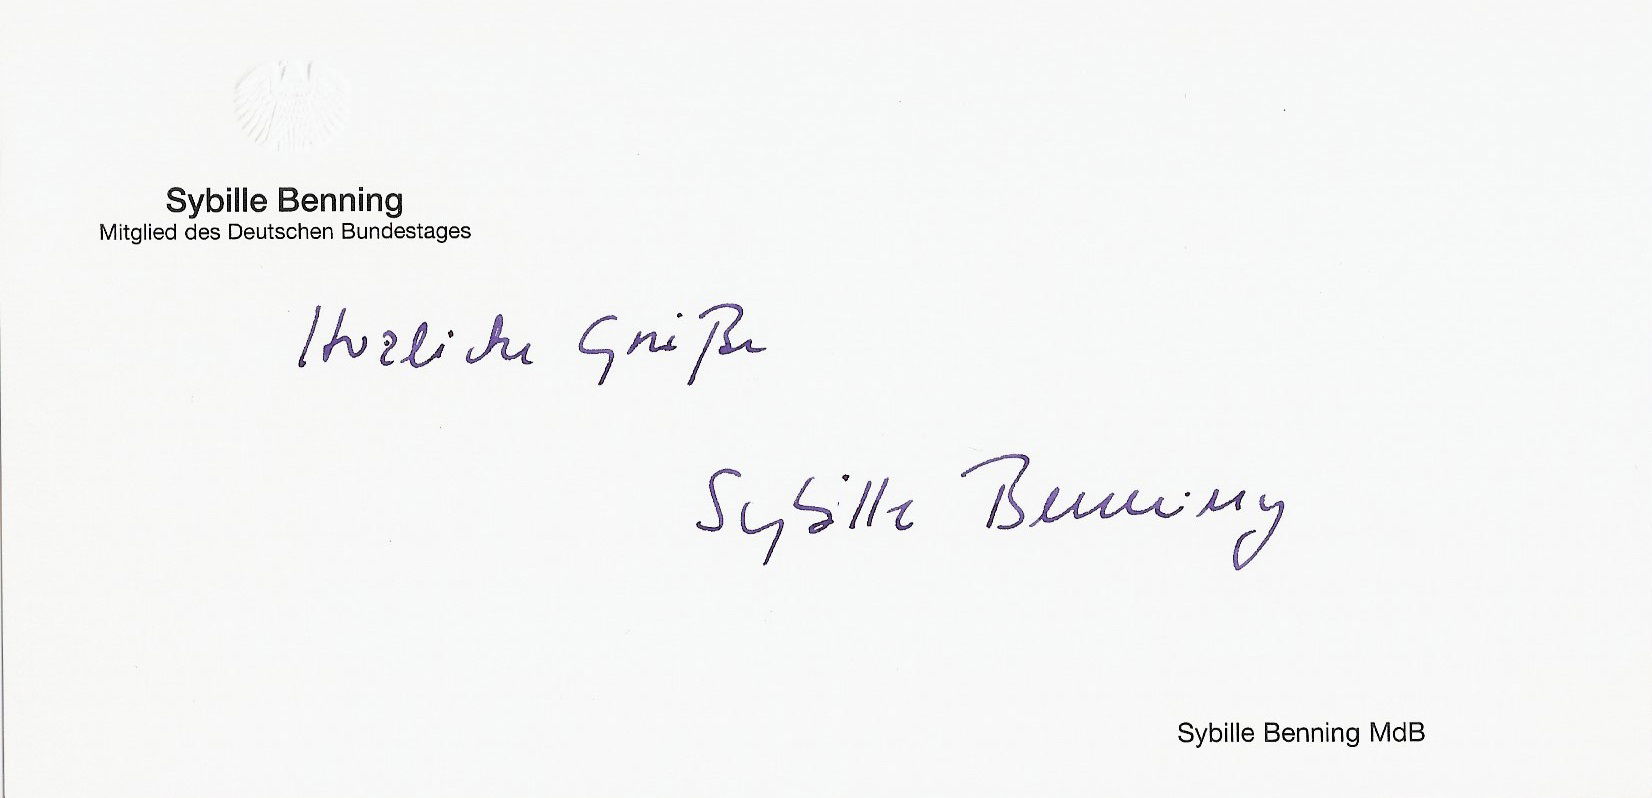 Sybille Benning
Mitglied des Deutschen Bundestages
Herzliche Grüße
Sybille Benning
Sybille Benning MdB